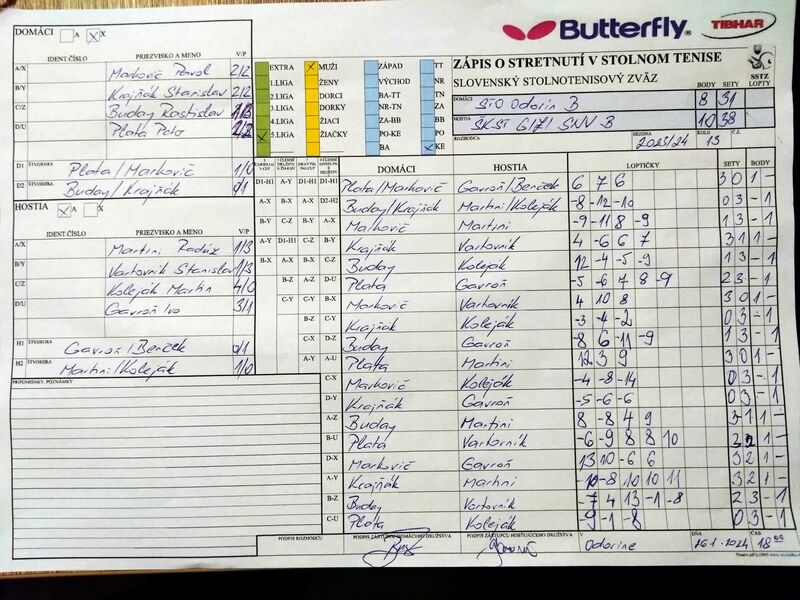 DOMÁCI A X X
Butterfly TIBHAR
IDENT.ČÍSLO PRIEZVISKO A MENO V/P
A/X Markovič Pavol 2/2
B/Y Krajňák Stanislav 2/2
C/Z Buday Rastislav
D/U Plata Peto 2/2
D1 ŠTVORHRA Plata/Markovič 1/0
D2 ŠTVORHRA Buday/Krajňák 0/1
HOSTIA A X X
IDENT.ČÍSLO PRIEZVISKO A MENO V/P
A/X Martini Radúz 1/3
B/Y Vartovník Stanislav 1/3
C/Z Koleják Martin 4/0
D/U Gavroň Ivo 3/1
H1 ŠTVORHRA Gavroň/Berček 0/1
H2 ŠTVORHRA Martini/Koleják 1/0
PRIPOMIENKY, POZNÁMKY
EXTRA X MUŽI ZÁPAD TT
1.LIGA ŽENY VÝCHOD NR
2.LIGA DORCI BA-TT TN
3.LIGA DORKY NR-TN ZA
4.LIGA ŽIACI ZA-BB BB
5.LIGA ŽIAČKY PO-KE PO
BA KE
ZÁPIS O STRETNUTÍ V STOLNOM TENISE
SLOVENSKÝ STOLNOTENISOVÝ ZVÄZ
SSTZ
BODY SETY LOPTY
DOMÁCI STO Odorín B 8 31
HOSTIA ŠKST G1/Z1 SNV B 10 38
ROZHODCA SEZÓNA 2023/24 KOLO 13 Č.Z.
DOMÁCI HOSTIA LOPTIČKY SETY BODY
D1-H1 A-Y D1-H1 D1-H1 Plata/Markovič Gavroň/Berček 6 7 6 3 0 1 -
A-X B-X A-X D2-H2 Buday/Krajňák Martini/Koleják -8 -12 -10 0 3 - 1
B-Y C-Z B-Y A-X Markovič Martini -9 -11 8 -9 1 3 - 1
A-Y D1-H1 C-Z B-Y Krajňák Vartovník 4 -6 6 7 3 1 1 -
B-X A-X B-X C-Z Buday Koleják 12 -4 -5 -9 1 3 - 1
B-Z A-Z D-U Plata Gavroň -5 -6 7 8 -9 2 3 - 1
C-Y C-Y B-X Markovič Vartovník 4 10 8 3 0 1 -
B-Z C-Y Krajňák Koleják -3 -4 -2 0 3 - 1
C-X D-Z Buday Gavroň -8 6 -11 -9 1 3 - 1
A-Y A-U Plata Martini 12 3 9 3 0 1 -
C-X Markovič Koleják -4 -8 -14 0 3 - 1
D-Y Krajňák Gavroň -5 -6 -6 0 3 - 1
A-Z Buday Martini 8 -8 4 9 3 1 1 -
B-U Plata Vartovník -6 -9 8 8 10 3 2 1 -
D-X Markovič Gavroň 13 10 -6 6 3 2 1 -
A-Y Krajňák Martini -10 -8 10 10 11 3 2 1 -
B-Z Buday Vartovník -7 4 13 -1 -8 2 3 - 1
C-U Plata Koleják -9 -1 -8 0 3 - 1
PODPIS ROZHODCU PODPIS ZÁSTUPCU DOMÁCEHO DRUŽSTVA PODPIS ZÁSTUPCU HOSŤUJÚCEHO DRUŽSTVA V Odoríne DŇA 26.1.2024 ČAS 18 00